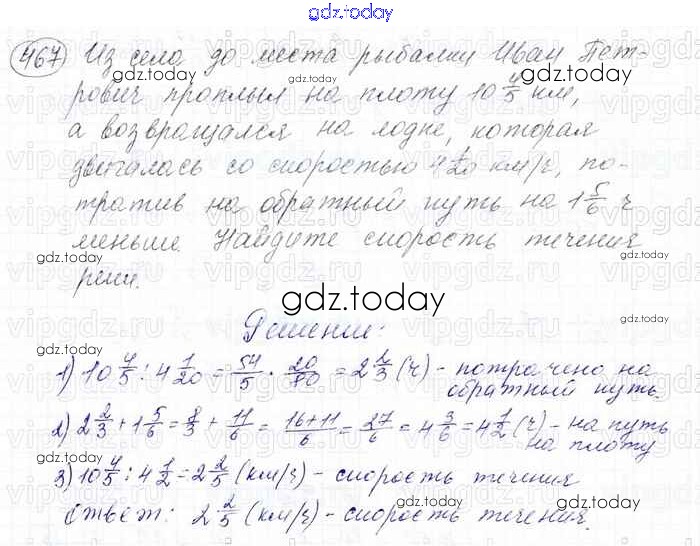 gdz.today
467) Из села до места рыбалки Иван Пет-
рович проплыл на плоту 10 4/5 км,
а возвращался на лодке, которая
двигалась со скоростью 4 1/20 км/ч, по-
тратив на обратный путь на 1 5/6 ч
меньше. Найдите скорость течения
реки.
gdz.today
Решение:
1) 10 4/5 : 4 1/20 = 54/5 · 20/80 = 2 2/3 (ч) - потрачено на
обратный путь.
2) 2 2/3 + 1 5/6 = 8/3 + 11/6 = 16+11/6 = 27/6 = 4 3/6 = 4 1/2 (ч) - на путь
на плоту
gdz.today
gdz.today
3) 10 4/5 : 4 1/2 = 2 2/5 (км/ч) - скорость течения
Ответ: 2 2/5 (км/ч) - скорость течения.
gdz.today
gdz.today